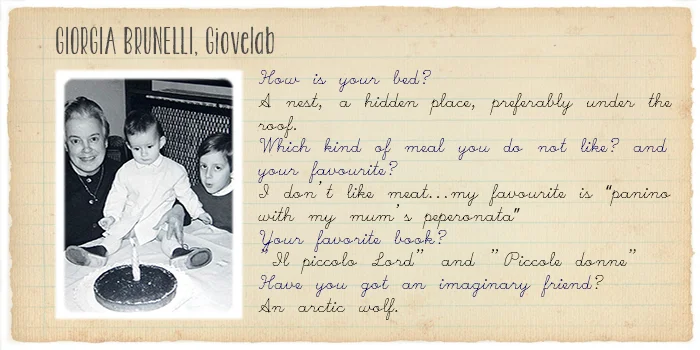 GIORGIA BRUNELLI, Giovelab
How is your bed?
A nest, a hidden place, preferably under the
roof.
Which kind of meal you do not like? and
your favourite?
I don't like meat...my favourite is "panino
with my mum's peperonata"
Your favorite book?
"Il piccolo Lord" and "Piccole donne"
Have you got an imaginary friend?
An arctic wolf.